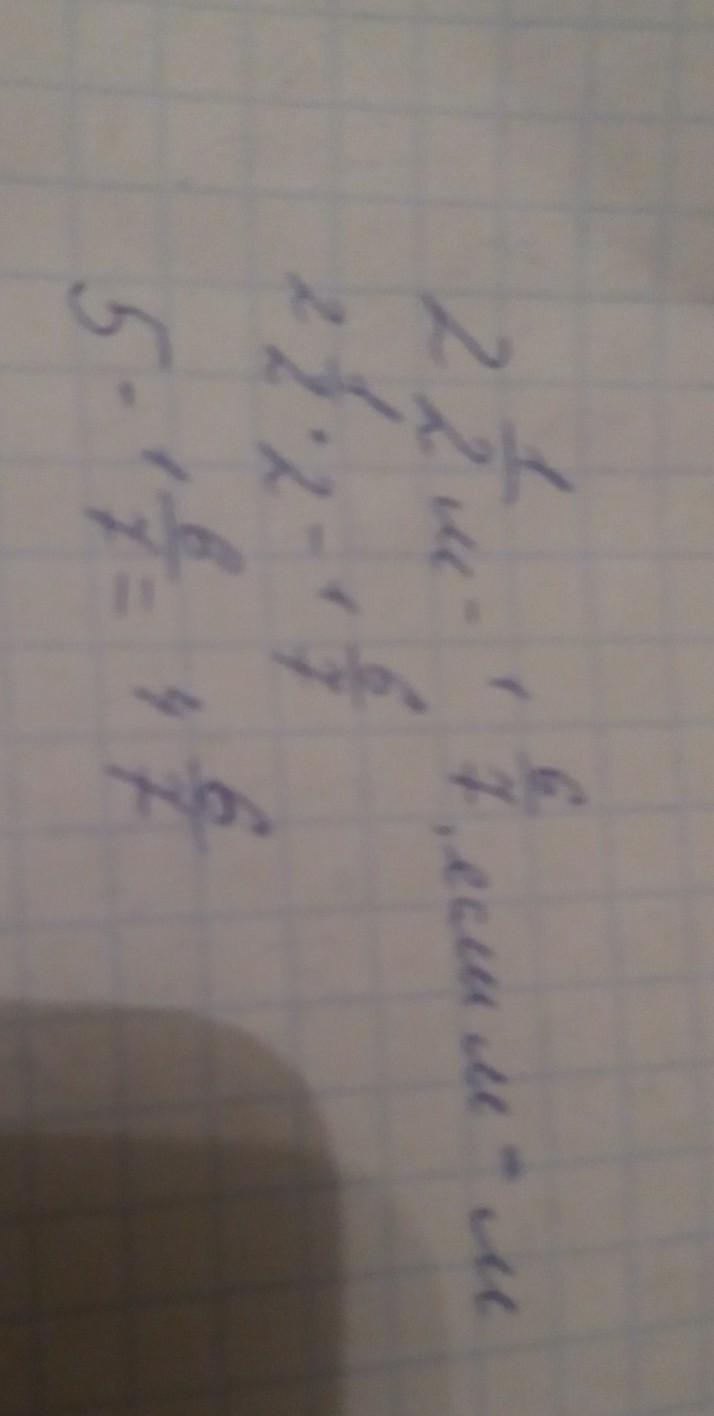 2 1/2 м - 1 6/7, если м = м
2 1/2 · 2 - 1 6/7
5 - 1 6/7 = 4 6/7